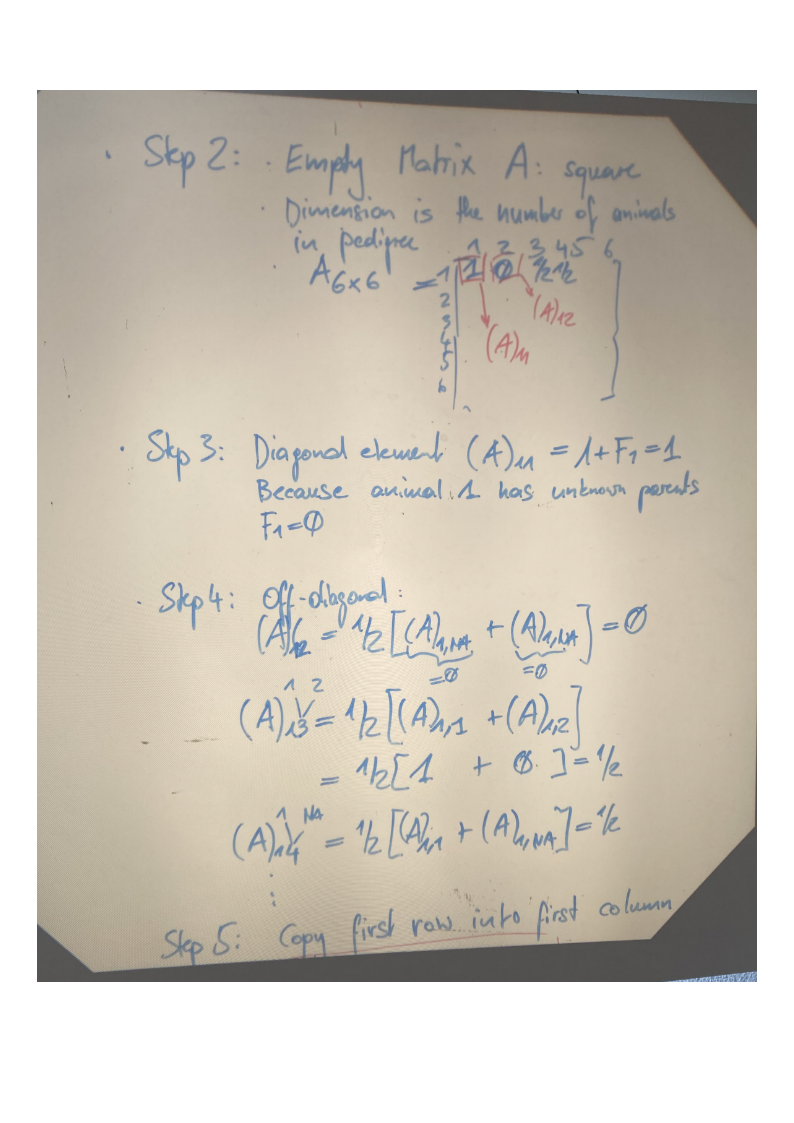 · Step 2: · Empty Matrix A: square
· Dimension is the number of animals
in pedigree
1 2 3 4 5 6
A6×6 = 1 [ 1 0 1/2 1/2 ]
2 (A)12
3
4 (A)11
5
6
· Step 3: Diagonal element (A)11 = 1+F1 = 1
Because animal 1 has unknown parents
F1 = 0
· Step 4: Off-diagonal:
(A)12 = 1/2 [(A)1,NA + (A)1,NA] = 0
=0 =0
1 2
(A)13 = 1/2 [(A)1,1 + (A)1,2]
= 1/2 [1 + 0] = 1/2
1 NA
(A)14 = 1/2 [(A)1,1 + (A)1,NA] = 1/2
⋮
Step 5: Copy first row into first column